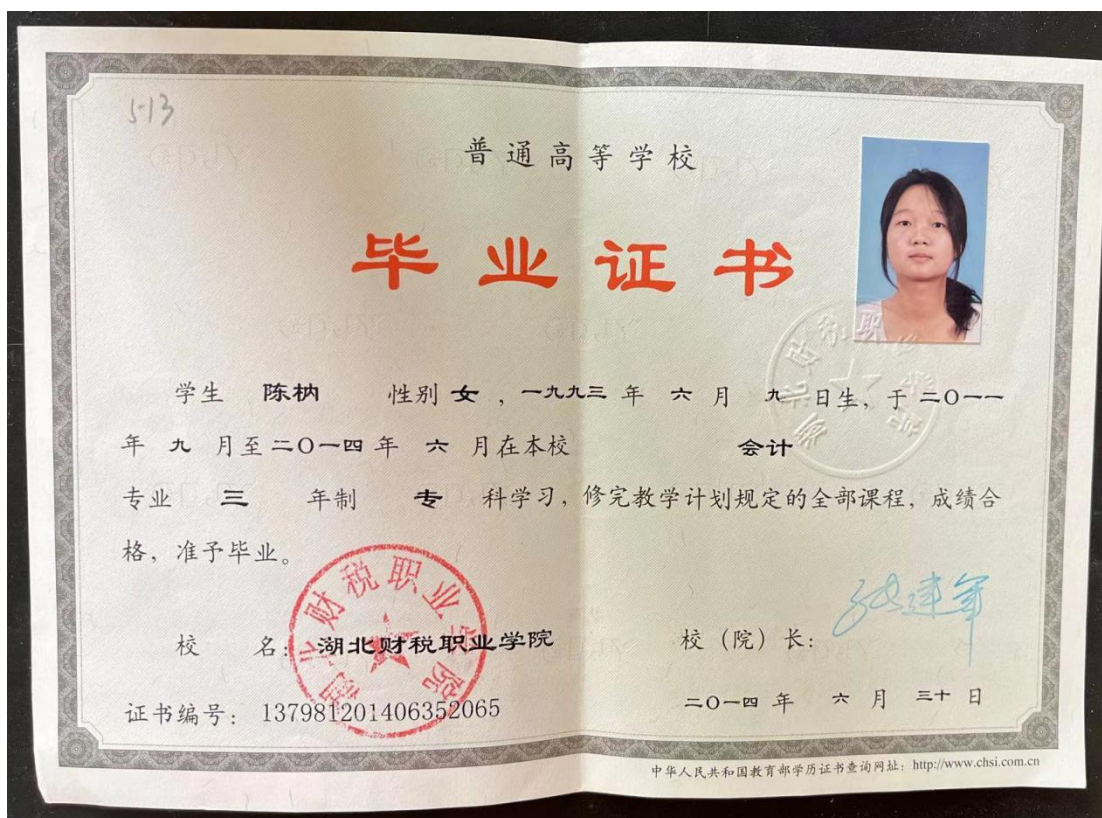 513
普通高等学校
毕业证书
学生 陈枘 性别 女 ，一九九三 年 六 月 九 日生，于 二〇一一
年 九 月至 二〇一四 年 六 月在本校 会计
专业 三 年制 专 科学习，修完教学计划规定的全部课程，成绩合
格，准予毕业。
湖北财税职业学院
校 名：湖北财税职业学院
校（院）长：
证书编号：137981201406352065
二〇一四 年 六 月 三十 日
中华人民共和国教育部学历证书查询网址：http://www.chsi.com.cn